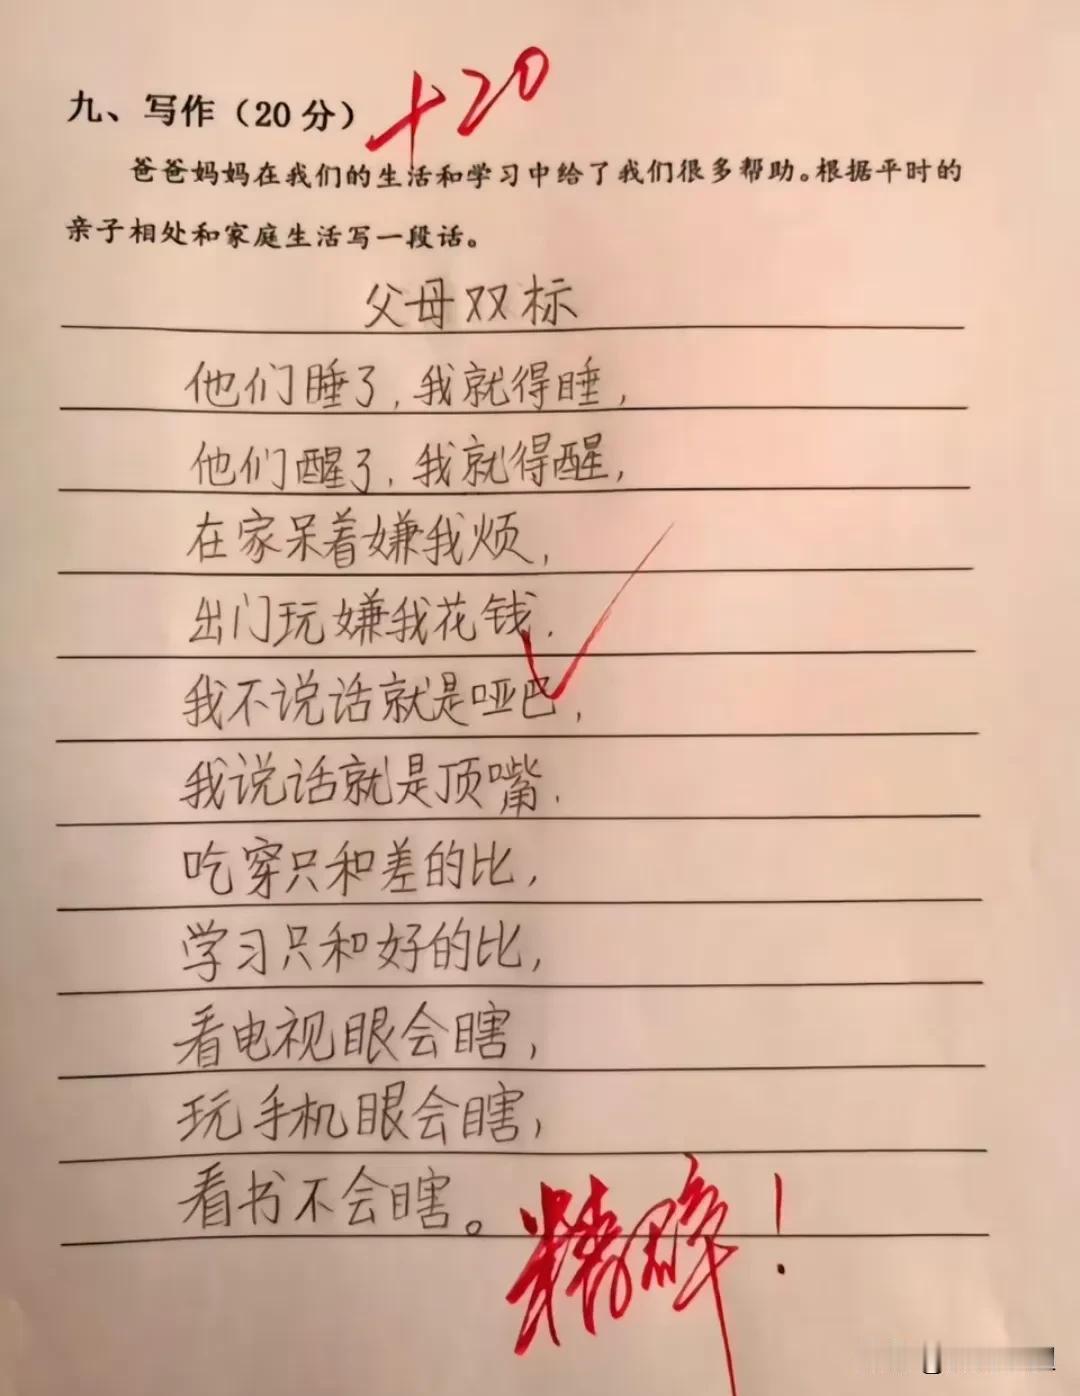 九、写作（20分）
+20
爸爸妈妈在我们的生活和学习中给了我们很多帮助。根据平时的
亲子相处和家庭生活写一段话。
父母双标
他们睡了，我就得睡，
他们醒了，我就得醒，
在家呆着嫌我烦，
出门玩嫌我花钱.
我不说话就是哑巴，
我说话就是顶嘴.
吃穿只和差的比，
学习只和好的比，
看电视眼会瞎，
玩手机眼会瞎，
看书不会瞎。
精辟！